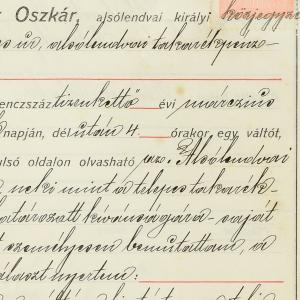 Oszkár, alsólendvai királyi közjegyző
úr, alsólendvai takarékpénz-
enczszáz tizenkettő évi márczius
napján, délután 4 órakor egy váltót,
ulsó oldalon olvasható Alsólendvai
, neki mint a telepes takarék-
határozott kívánságára saját
személyesen bemutattam, a
választ nyertem: